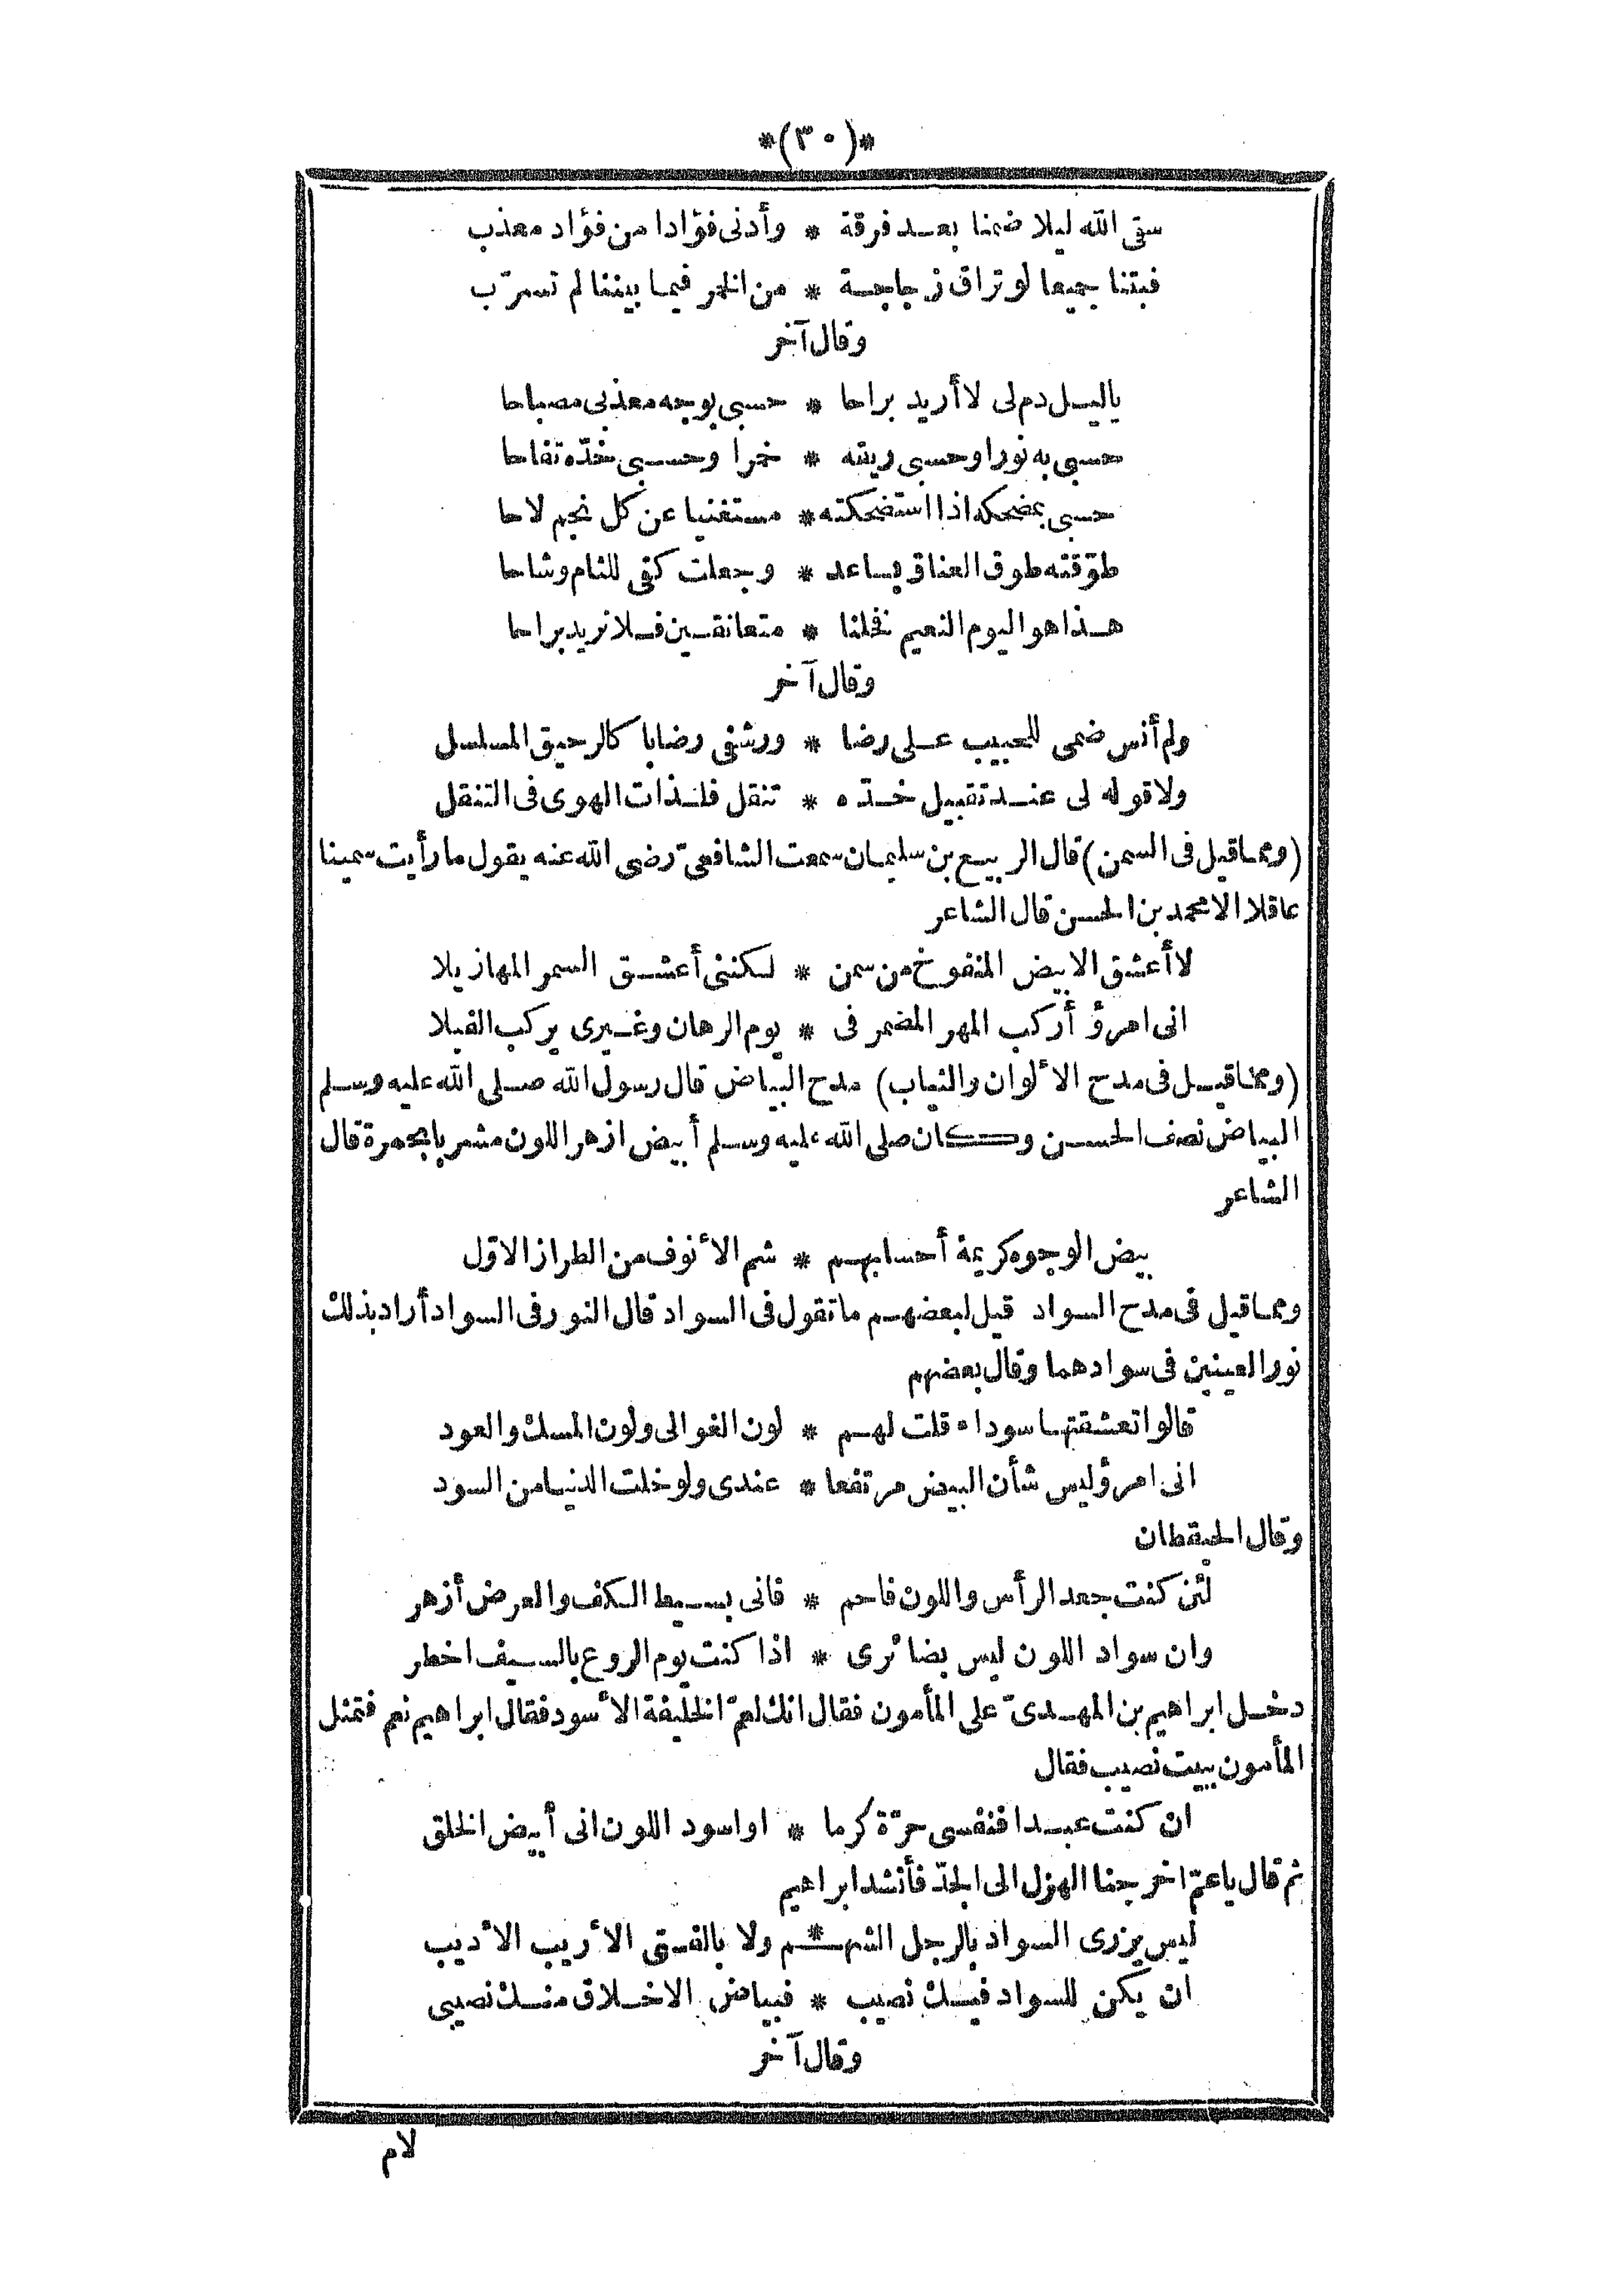 *(٣٠)*
سقى الله ليلا ضمنا بعد فرقة * وأدنى فؤادا من فؤاد معذب
فبتنا جميعا لو تراق زجاجة * من الخمر فيما بيننا لم تسرّب
وقال آخر
ياليل دم لى لا أريد براحا * حسبى بوجه معذبى مصباحا
حسبى به نورا وحسبى ريقه * خمرا وحسبى خدّه تفاحا
حسبى بمضحكه اذا استضحكته * مستغنيا عن كل نجم لاحا
طوّقته طوق العناق بساعد * وجعلت كفى للثام وشاحا
هذا هو اليوم النعيم فخلنا * متعانقين فلا نريد براحا
وقال آخر
ولم أنس ضمى للحبيب على رضا * ورشفى رضابا كالرحيق المسلسل
ولا قوله لى عند تقبيل خدّه * تنقل فلذات الهوى فى التنقل
(ومما قيل فى السمن) قال الربيع بن سليمان سمعت الشافعىّ رضى الله عنه يقول ما رأيت سمينا
عاقلا الا محمد بن الحسن قال الشاعر
لا أعشق الابيض المنفوخ من سمن * لكننى أعشق السمر المهازيلا
انى امرؤ أركب المهر المضمر فى * يوم الرهان وغيرى يركب الفيلا
(ومما قيل فى مدح الألوان والثياب) مدح البياض قال رسول الله صلى الله عليه وسلم
البياض نصف الحسن وكان صلى الله عليه وسلم أبيض ازهر اللون مشربا بحمرة قال
الشاعر
بيض الوجوه كريمة أحسابهم * شم الأنوف من الطراز الاوّل
ومما قيل فى مدح السواد قيل لبعضهم ما تقول فى السواد قال النور فى السواد أراد بذلك
نور العينين فى سوادهما وقال بعضهم
قالوا تعشقتها سوداء قلت لهم * لون الغوالى ولون المسك والعود
انى امرؤ ليس شأن البيض مرتفعا * عندى ولو خلت الدنيا من السود
وقال الحيقطان
لئن كنت جعد الرأس واللون فاحم * فانى بسيط الكف والعرض أزهر
وان سواد اللون ليس بضائرى * اذا كنت يوم الروع بالسيف اخطر
دخل ابراهيم بن المهدىّ على المأمون فقال انك لعمّ الخليفة الأسود فقال ابراهيم نعم فتمثل
المأمون ببيت نصيب فقال
ان كنت عبدا فنفسى حرّة كرما * او اسود اللون انى أبيض الخلق
ثم قال ياعمّ اخرجنا الهزل الى الجدّ فأنشد ابراهيم
ليس يزرى السواد بالرجل الشهـ*ـم ولا بالفتى الأريب الأديب
ان يكن للسواد فيك نصيب * فبياض الاخلاق منك نصيبى
وقال آخر
لام